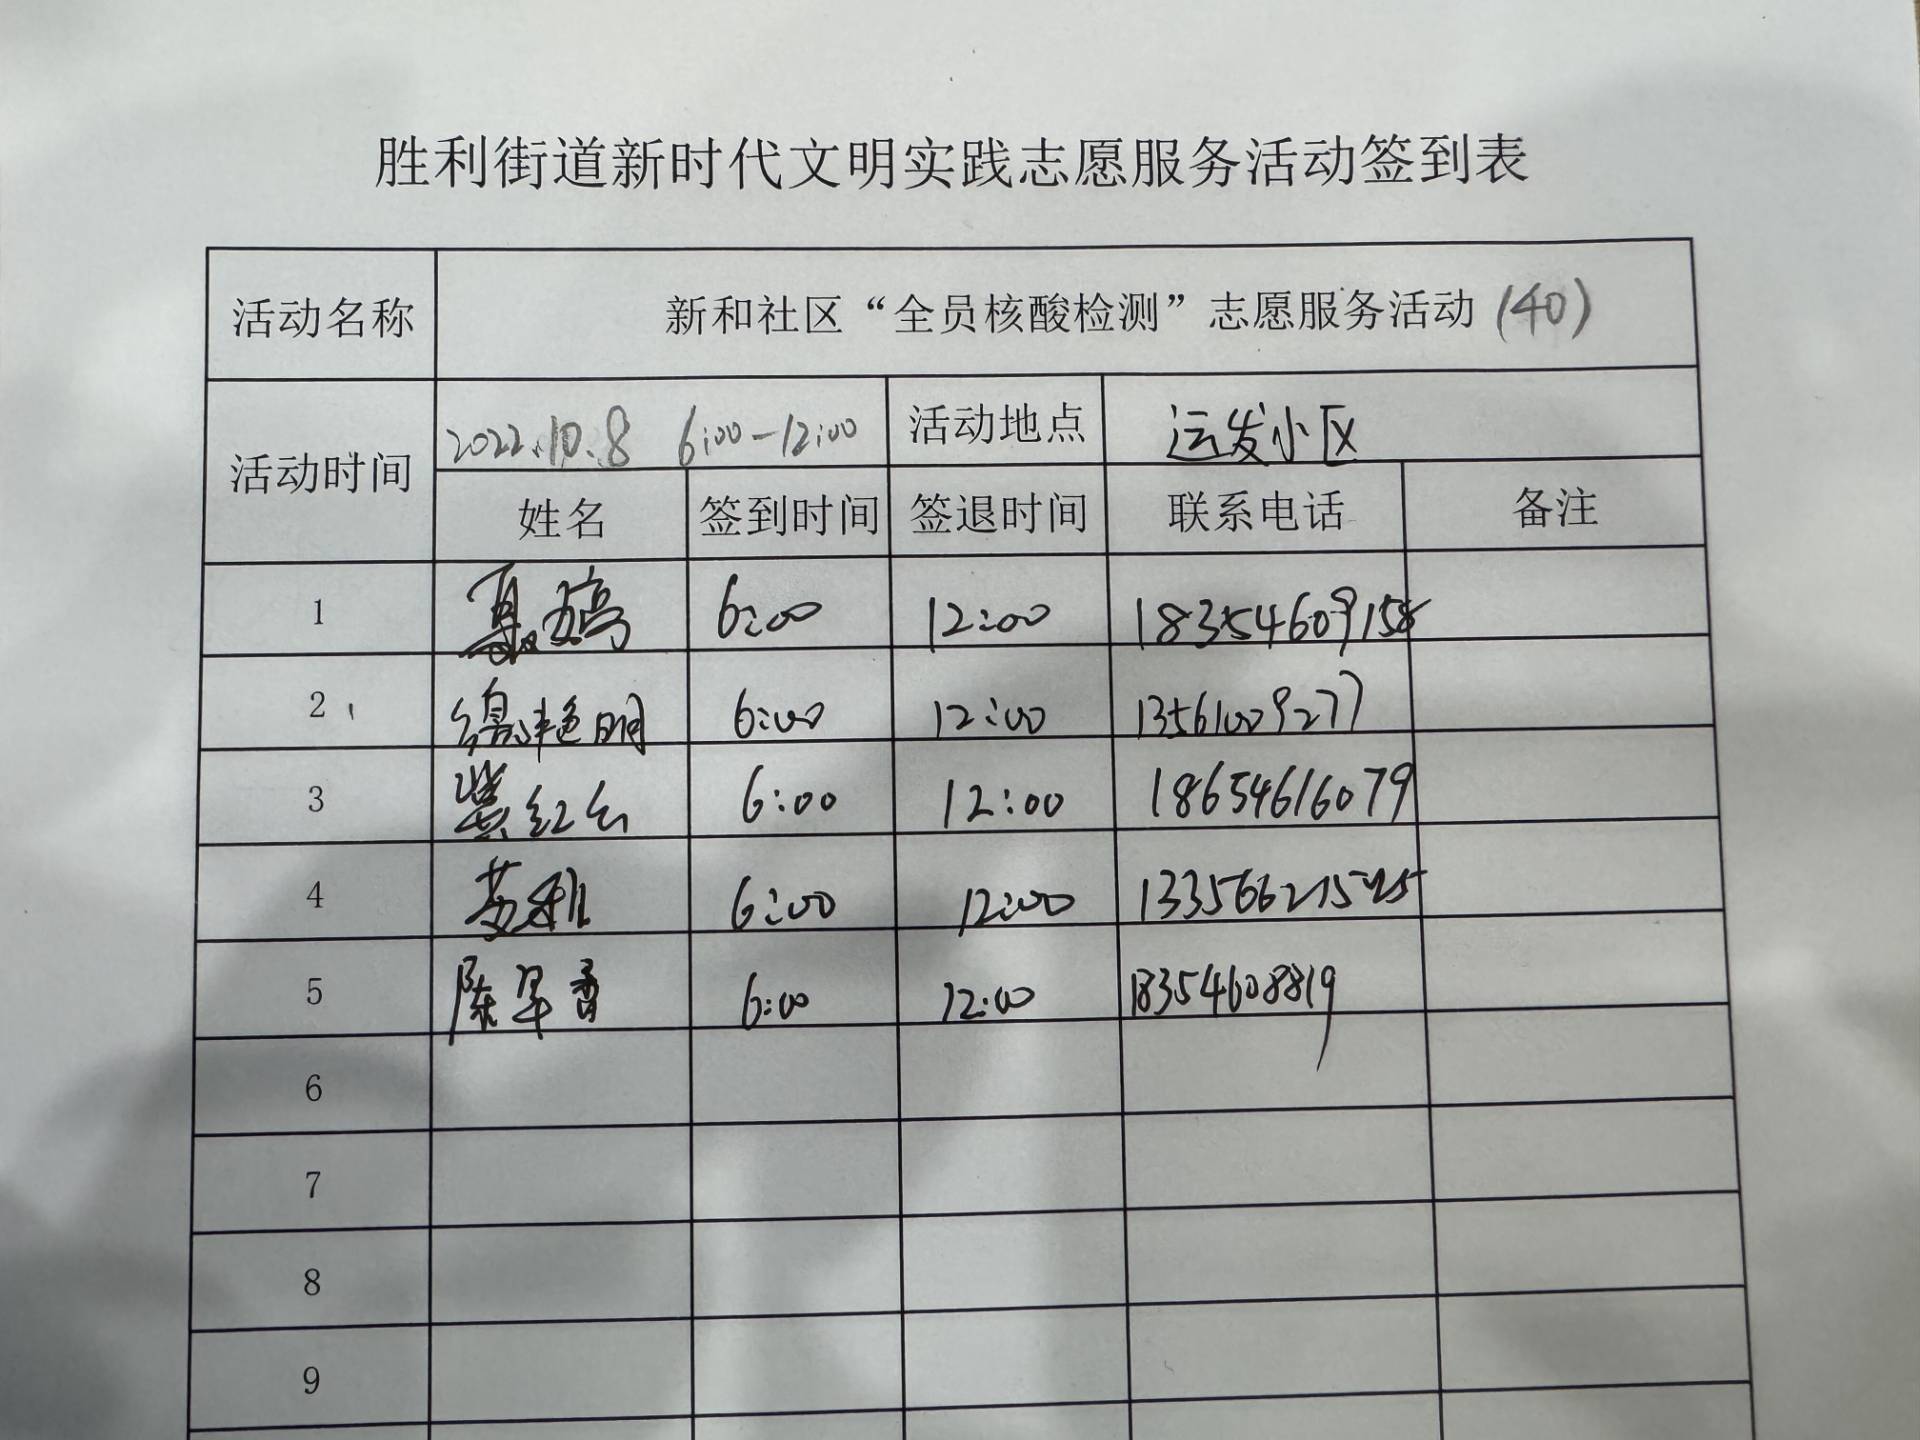 胜利街道新时代文明实践志愿服务活动签到表
活动名称 新和社区“全员核酸检测”志愿服务活动 (40)
活动时间 2022.10.8 6:00-12:00 活动地点 运发小区
姓名 签到时间 签退时间 联系电话 备注
1 6:00 12:00 18354609158
2 6:00 12:00 13561009277
3 6:00 12:00 18654616079
4 6:00 12:00
5 陈军香 6:00 12:00 18354608819
6
7
8
9